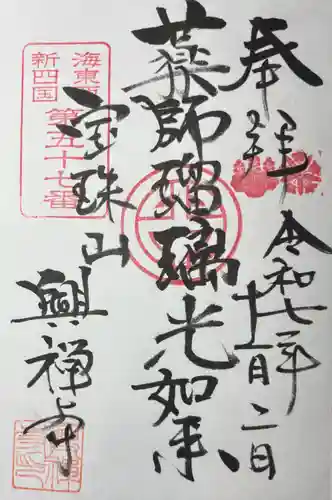 奉拝
令和七年
十二月二日
薬師瑠璃光如来
海東
新四国
第五十七番
宝珠山
興禅寺